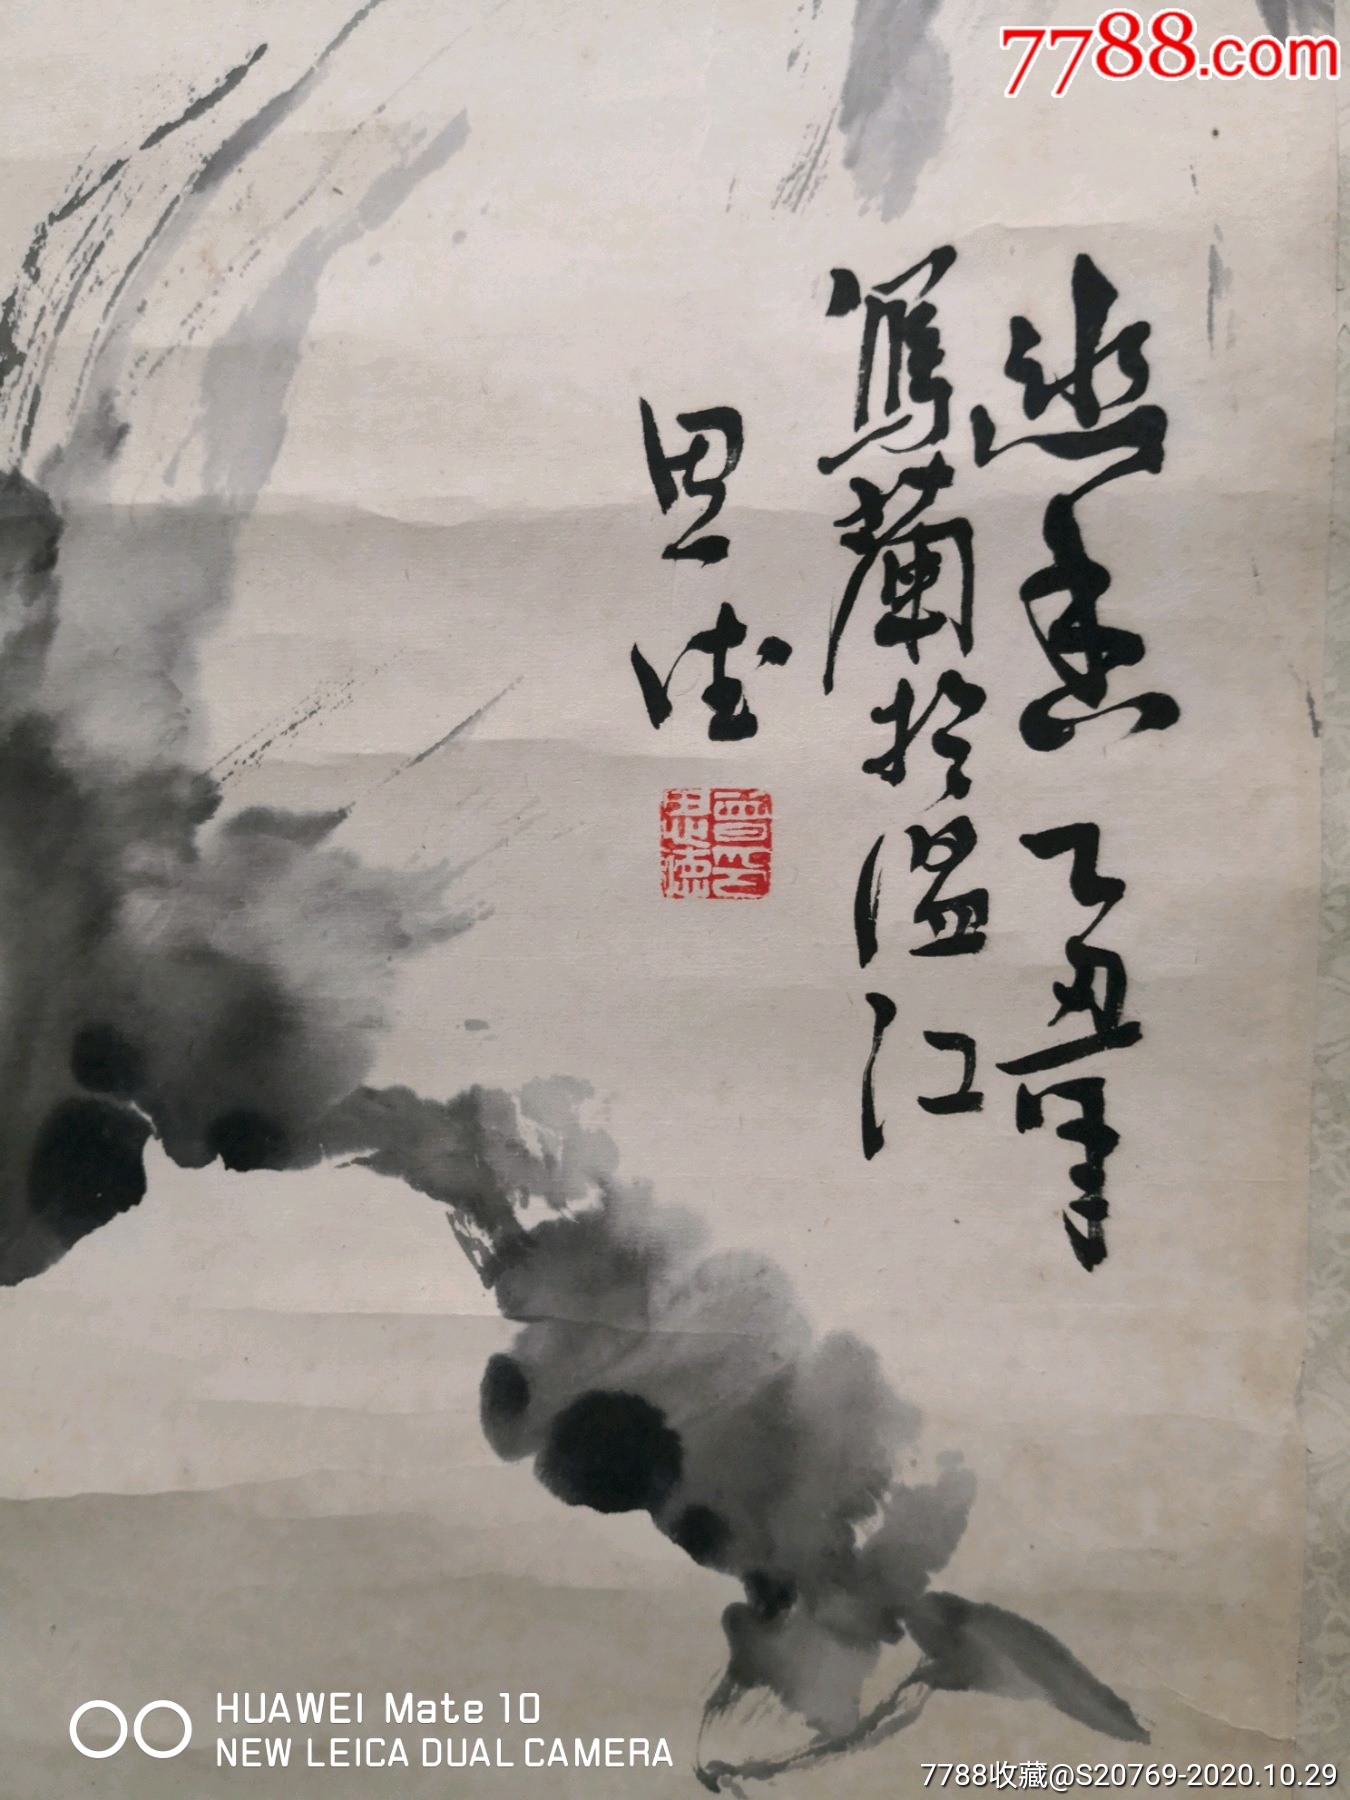 7788.com
幽香 乙丑年
写蘭於温江
思德
曾思德印
HUAWEI Mate 10
NEW LEICA DUAL CAMERA
7788收藏@S20769-2020.10.29